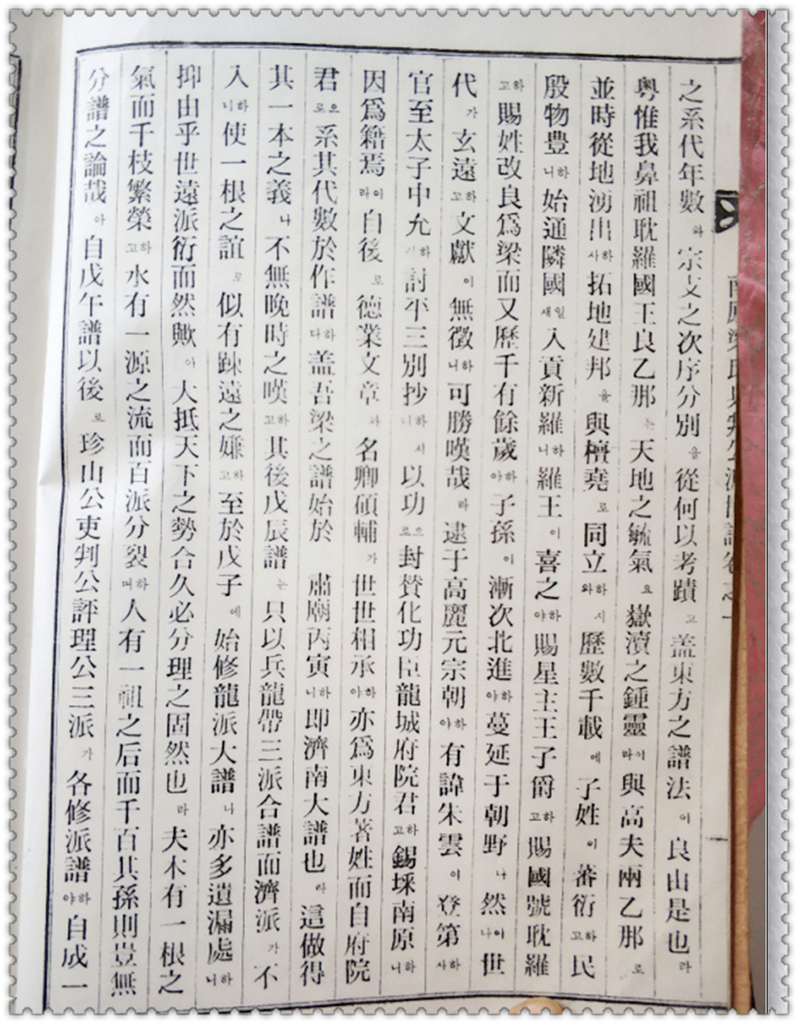 南原梁氏吏判公派譜卷之一
之系代年數와宗支之次序分別을從何以考蹟고盖東方之譜法이良由是也라
粤惟我鼻祖耽羅國王良乙那는天地之毓氣요嶽瀆之鍾靈이라與高夫兩乙那로
並時從地湧出하사拓地建邦을與檀堯로同立하시와歷數千載에子姓이蕃衍하고民
殷物豊하니始通隣國일새入貢新羅하니羅王이喜之하야賜星主王子爵하고賜國號耽羅
하고賜姓改良爲梁而又歷千有餘歲하야子孫이漸次北進하야蔓延于朝野나然이나世
代가玄遠하고文獻이無徵하니可勝嘆哉라逮于高麗元宗朝하야有諱朱雲이登第하사
官至太子中允하시討平三別抄하시니以功으로封賛化功臣龍城府院君하고錫埰南原하니
因爲籍焉이라自後로德業文章과名卿碩輔가世世相承하야亦爲東方著姓而自府院
君으로系其代數於作譜하다盖吾梁之譜始於 肅廟丙寅하니即濟南大譜也라這做得
其一本之義나不無晩時之嘆하고其後戊辰譜는只以兵龍帶三派合譜而濟派가不
入하니使一根之誼로似有踈遠之嫌하고至於戊子에始修龍派大譜나亦多遺漏處하니
抑由乎世遠派衍而然歟아大抵天下之勢合久必分理之固然也라夫木有一根之
氣而千枝繁榮하고水有一源之流而百派分裂하며人有一祖之后而千百其孫則豈無
分譜之論哉아自戊午譜以後로珍山公吏判公評理公三派가各修派譜하야自成一